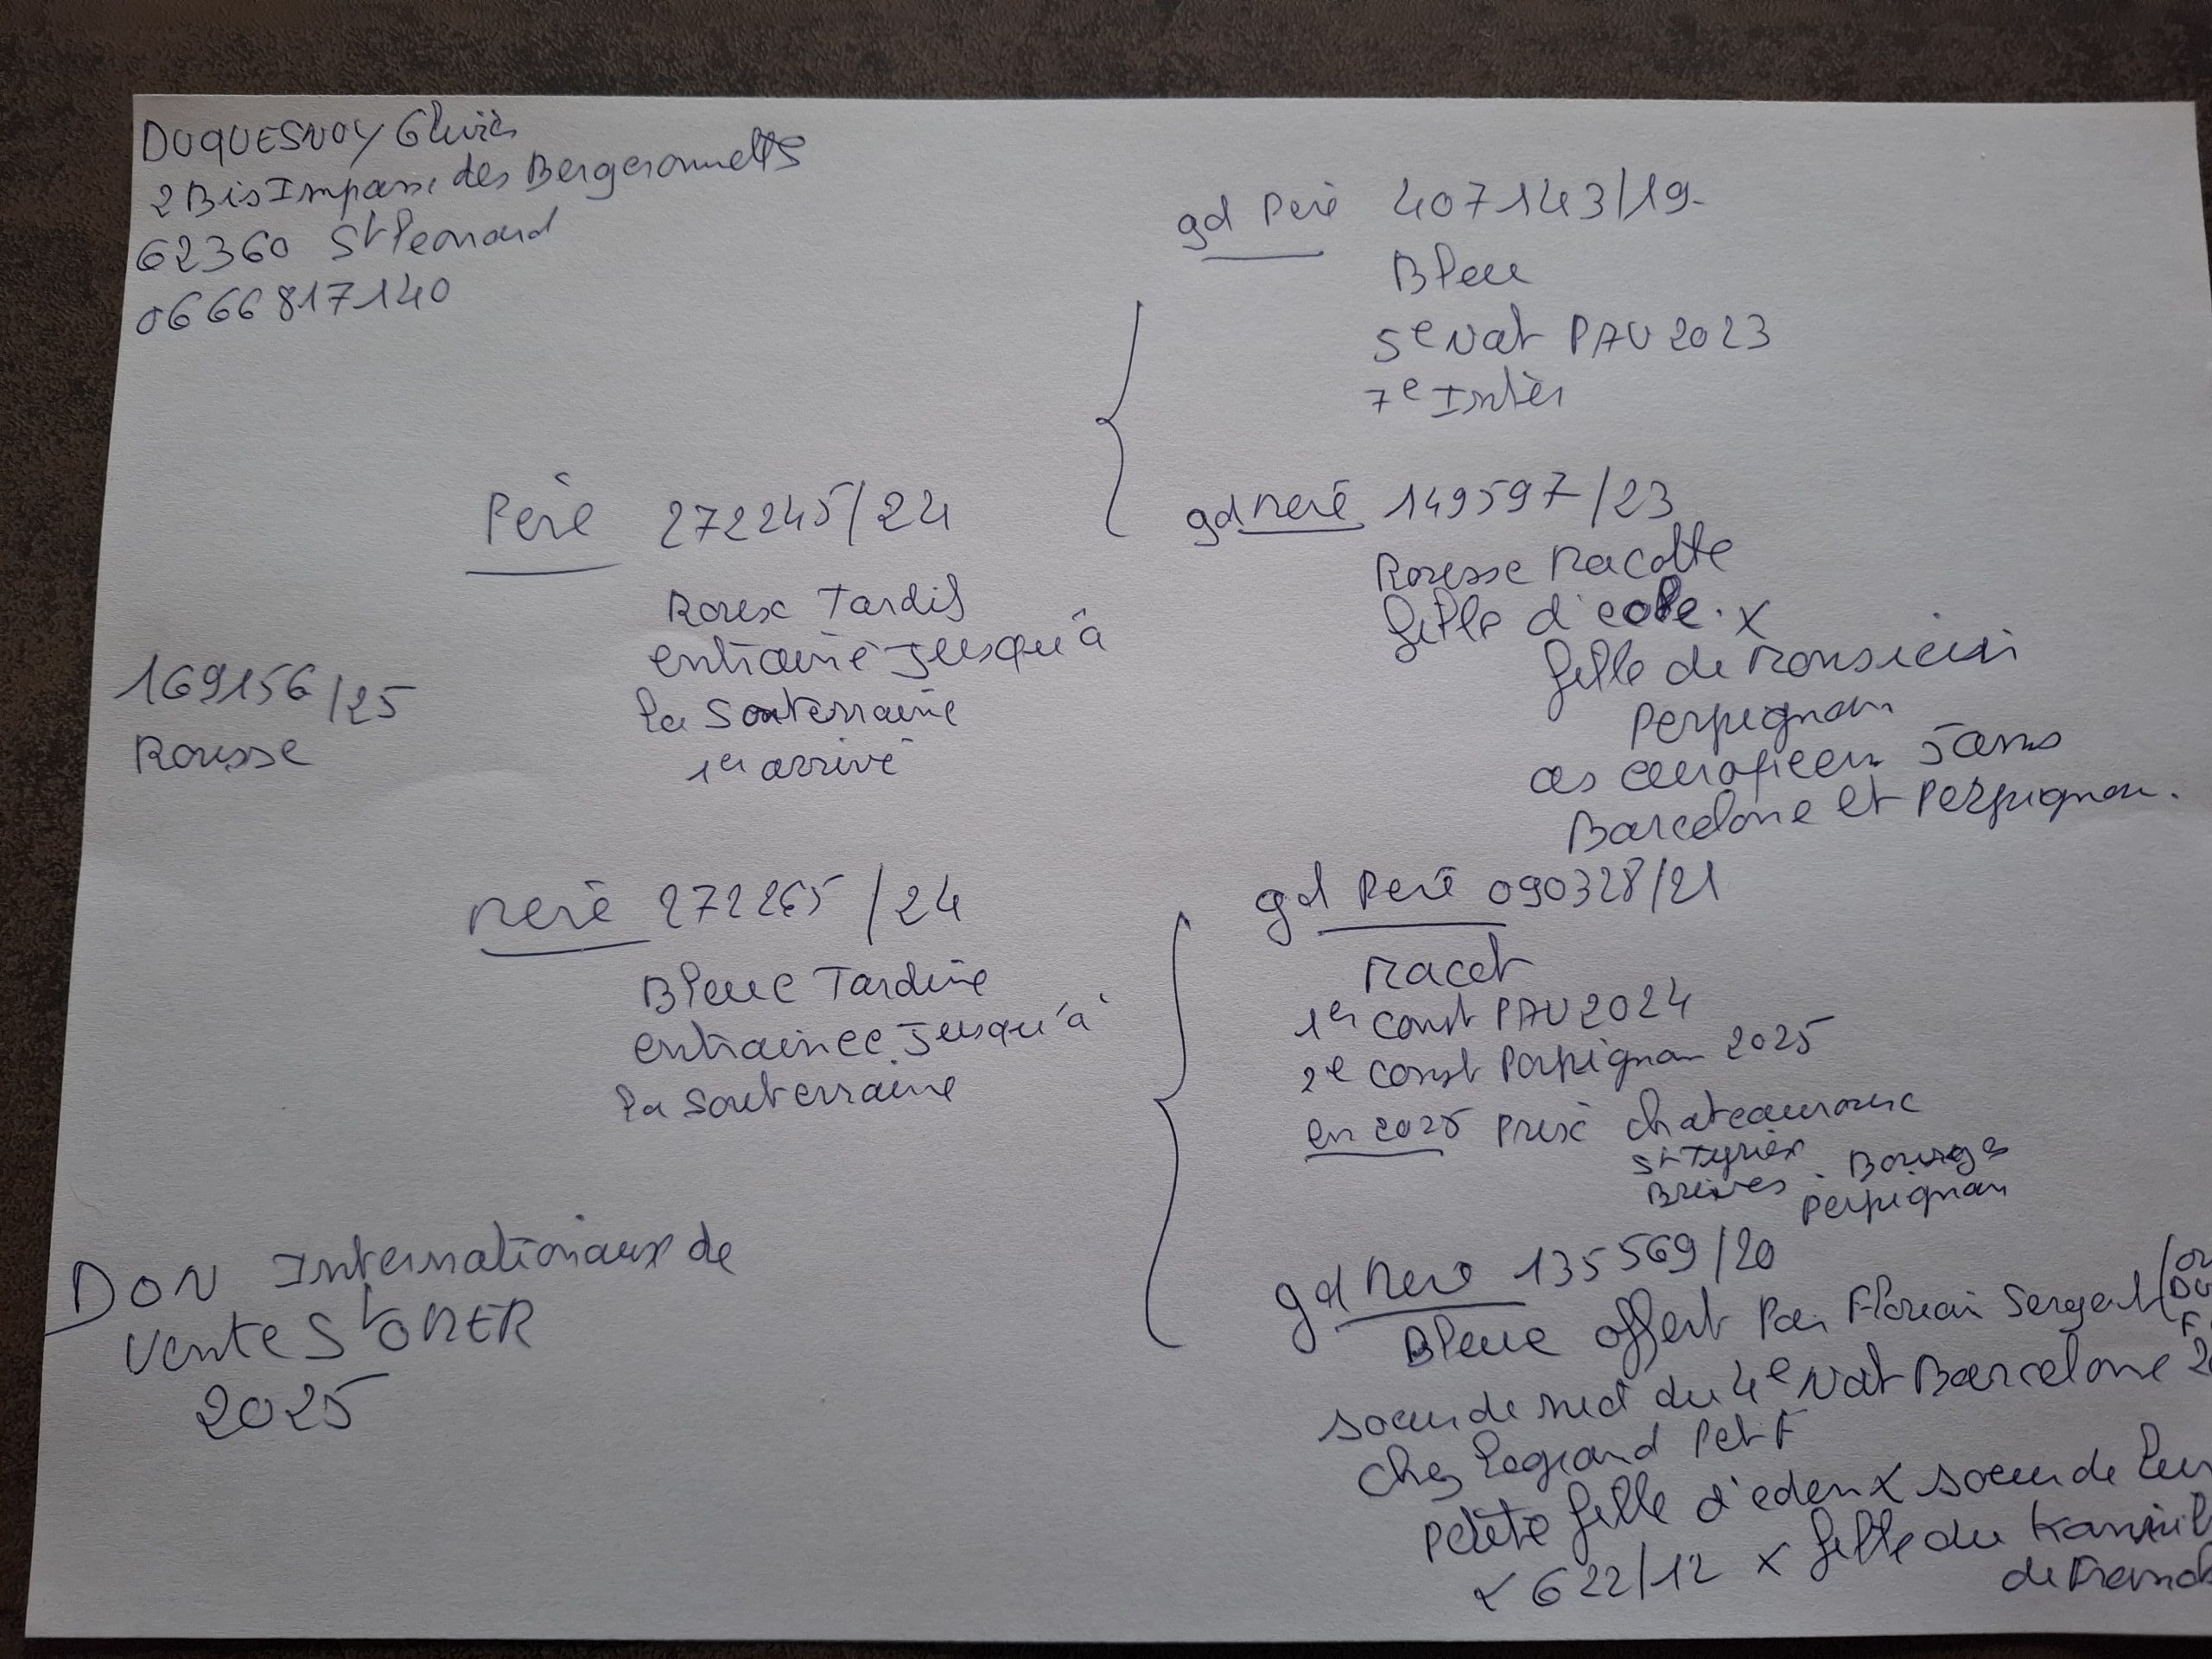 DUQUESNOY Olivier
2 Bis Impasse des Bergeronnettes
62360 St Leonard
0666817140
169156/25
Rousse
Père 272245/24
Roux Tardif
entrainé Jusqu'à
la Souterraine
1er arrivé
gd Père 407143/19
Bleu
5e Nat PAU 2023
7e Inter
gd Mère 149597/23
Rousse Macotte
fille d'cole x
fille de Monsieur
Perpignan
as européen 5 ans
Barcelone et Perpignan.
Mère 272265/24
Bleue Tardive
entrainée Jusqu'à
la Souterraine
gd Père 090328/21
Macot
1er Const PAU 2024
2e Const Perpignan 2025
en 2025 Prix Chateauroux
St Tyriex
Brives . Bourges
Perpignan
gd Mère 135569/20
Bleue offert Par Florian Sergent
soeur de nid du 4e Nat Barcelone
Chez Legrand Petit
Petite fille d'eden x soeur de
x 622/12 x fille du
de
DON Internationaux de
Vente St OMER
2025